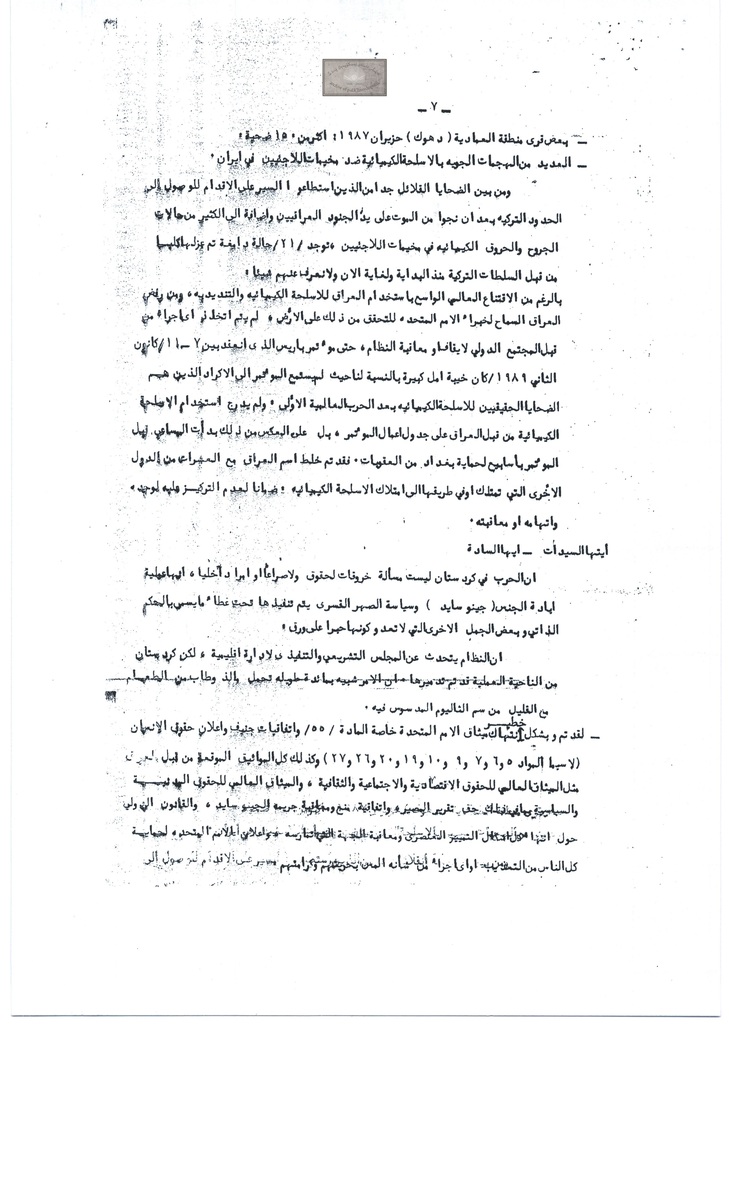 ـ ٧ ـ
ـ بعض قرى منطقة العمادية ( دهوك ) حزيران ١٩٨٧ : اكثر من ١٥٠ ضحية .
ـ العديد من الهجمات الجويه بالاسلحة الكيميائية ضد مخيمات اللاجئين في ايران .
ومن بين الضحايا القلائل جدا من الذين استطاعوا السير على الاقدام للوصول الى
الحدود التركيه بعد ان نجوا من الموت على يد الجنود العراقيين واضافة الى الكثير من حالات
الجروح والحروق الكيميائيه في مخيمات اللاجئيين ، توجد /٢١/ حالة دامغة تم عزلها كليا
من قبل السلطات التركية منذ البداية ولغاية الان ولا نعرف عنهم شيئا .
بالرغم من الاقتناع العالمي الواسع باستخدام العراق للاسلحة الكيميائيه والتنديد به ، ومن رفض
العراق السماح لخبراء الامم المتحده للتحقق من ذلك على الارض ، لم يتم اتخاذ اى اجراء من
قبل المجتمع الدولي لايقاف او معاقبة النظام ، حتى مؤتمر باريس الذى انعقد بين ٧ ـ ١١/كانون
الثاني ١٩٨٩/ كان خيبة امل كبيرة بالنسبة لنا حيث لم يستمع المؤتمر الى الاكراد الذين هم
الضحايا الحقيقيين للاسلحة الكيميائيه بعد الحرب العالمية الأولى . ولم يدرج استخدام الاسلحة
الكيميائية من قبل العراق على جدول اعمال المؤتمر ، بل على العكس من ذلك بدأت المساعي قبل
المؤتمر باسابيع لحماية بغداد من العقوبات . فقد تم خلط اسم العراق مع العشرات من الدول
الأخرى التي تمتلك او في طريقها الى امتلاك الاسلحة الكيميائيه . ضمانا لعدم التركيز عليه لوحده
واتهامه او معاقبته .
أيتها السيدات ـ ايها السادة
ان الحرب في كردستان ليست مسألة خروقات لحقوق ولا صراعاً او ايرادا داخليا ، انها عملية
ابادة الجنس ( جينو سايد ) وسياسة الصهر القسرى يتم تنفيذها تحت غطاء مايسمى بالحكم
الذاتي وبعض الجمل الاخرى التي لاتعدو كونها حبرا على ورق .
ان النظام يتحدث عن المجلس التشريعي والتنفيذى لادارة اقليمية ، لكن كردستان
من الناحية العملية قد تم تدميرها . ان الامر شبيه بمائدة طويله تحمل والذ وطاب من الطعام
مع القليل من سم الثاليوم المدسوس فيه .
ـ لقد تم وبشكل خطير انتهاك ميثاق الامم المتحدة خاصة المادة /٥٥/ واتفاقيات جنيف واعلان حقوق الانسان
(لاسيما المواد ٥ و٦ و٧ و ٩ و ١٠ و ١٩ و ٢٠ و ٢٦ و ٢٧) وكذلك كل المواثيق الموقعة من قبل العراق
مثل الميثاق العالمي للحقوق الاقتصادية والاجتماعية والثقافية ، والميثاق العالمي للحقوق المدنية
والسياسية بما في ذلك حق تقرير المصير ، واتفاقية منع ومعاقبة جريمة الجينو سايد ، والقانون الدولي
حول انتهاء كل اشكال التمييز العنصرى ومعاقبة الجهة التي تمارسه ، واعلان الامم المتحده لحماية
كل الناس من التعذيب او اى اجراء من شأنه المس بحريتهم وكرامتهم